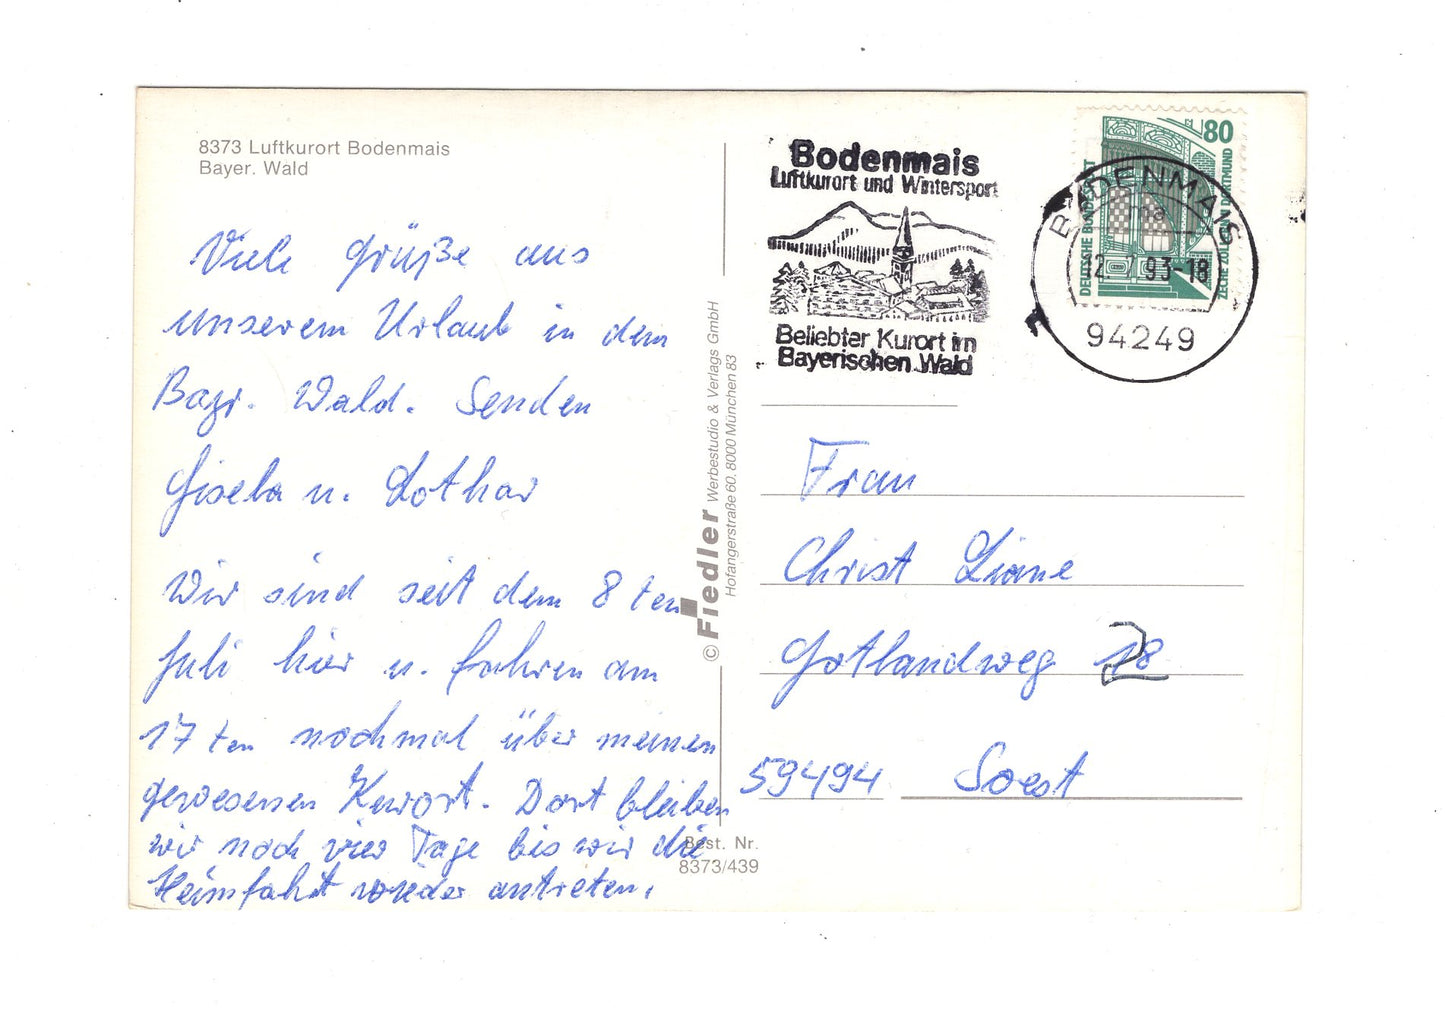 8373 Luftkurort Bodenmais
Bayer. Wald
Viele Grüße aus
unserem Urlaub in dem
Bayr. Wald. Senden
Gisela u. Lothar
Wir sind seit dem 8 ten
Juli hier u. fahren am
17 ten nochmal über meinen
gewesenen Kurort. Dort bleiben
wir noch vier Tage bis wir die
Heimfahrt wieder antreten.
© Fiedler Werbestudio & Verlags GmbH
Hofangerstraße 60, 8000 München 83
Best. Nr.
8373/439
Bodenmais
Luftkurort und Wintersport
Beliebter Kurort im
Bayerischen Wald
80
DEUTSCHE BUNDESPOST
ZECHE ZOLLERN DORTMUND
BODENMAIS
93-18
94249
Frau
Christ Liane
Gotlandweg
59494 Soest